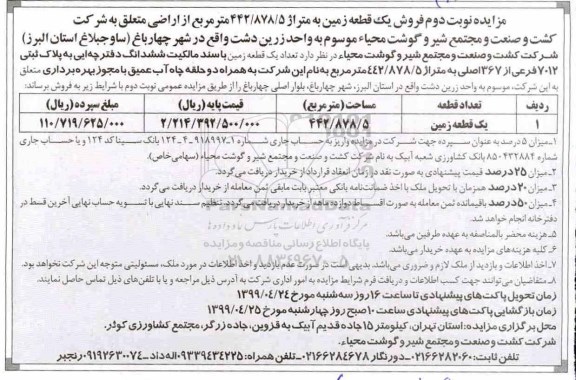 مزایده نوبت دوم فروش یک قطعه زمین به متراژ ۴۴۲/۸۷۸/۵ مترمربع از اراضی متعلق به شرکت
کشت و صنعت و مجتمع شیر و گوشت محیاء موسوم به واحد زرین دشت واقع در شهر چهارباغ (ساوجبلاغ استان البرز)
شرکت کشت و صنعت و مجتمع شیر و گوشت محیاء در نظر دارد تعداد یک قطعه زمین با سند مالکیت ششدانگ دفترچه‌ایی به پلاک ثبتی
۷۰۱۲ فرعی از ۳۶۷ اصلی به متراژ ۴۴۲/۸۷۸/۵ مترمربع به نام این شرکت به همراه دو حلقه چاه آب عمیق با مجوز بهره برداری متعلق
به این شرکت، موسوم به واحد زرین دشت واقع در استان البرز، شهر چهارباغ، بلوار اصلی چهارباغ را از طریق مزایده عمومی نوبت دوم با شرایط زیر به فروش برساند:
ردیف تعداد قطعه مساحت (مترمربع) قیمت پایه (ریال) مبلغ سپرده (ریال)
۱ یک قطعه زمین ۴۴۲/۸۷۸/۵ ۲/۲۱۴/۳۹۲/۵۰۰/۰۰۰ ۱۱۰/۷۱۹/۶۲۵/۰۰۰
۱-میزان ۵درصد به عنوان سپرده جهت شرکت در مزایده واریز به حساب جاری شماره ۱-۹۱۸۹۹۷-۴-۱۲۴ بانک سینا کد ۱۲۴ و یا حساب جاری
شماره ۸۵۰۴۳۲۸۸۴ بانک کشاورزی شعبه آبیک به نام شرکت کشت و صنعت و مجتمع شیر و گوشت محیاء (سهامی خاص).
۲-میزان ۲۵درصد قیمت پیشنهادی به صورت نقد در زمان انعقاد قرارداد از خریدار دریافت می‌گردد.
۳-میزان ۲۰درصد همزمان با تحویل ملک با اخذ ضمانت‌نامه بانکی معتبر بابت مابقی ثمن معامله از خریدار دریافت می‌گردد.
۴-میزان ۵۰درصد باقیمانده ثمن معامله به صورت اقساط دوازده ماهه از خریدار دریافت می‌گردد. تنظیم سند نهایی با تسویه حساب نهایی آخرین قسط در
دفترخانه انجام خواهد شد.
۵-هزینه محضر بالمناصفه به عهده طرفین می‌باشد.
۶-کلیه هزینه‌های مزایده به عهده خریدار می‌باشد.
۷-اخذ اطلاعات و بازدید از ملک لازم و ضروری می‌باشد. بدیهی است در صورت عدم بازدید و اخذ اطلاعات در مورد ملک، مسئولیتی متوجه این شرکت نخواهد بود.
۸-متقاضیان می‌توانند جهت کسب اطلاعات و دریافت فرم شرایط مزایده به امور اداری شرکت به آدرس ذیل مراجعه و یا با تلفن‌های ذیل تماس حاصل نمایند.
زمان تحویل پاکت‌های پیشنهادی تا ساعت ۱۶ روز سه‌شنبه مورخ ۱۳۹۹/۰۴/۲۴
زمان بازگشایی پاکت‌های پیشنهادی ساعت ۱۰ صبح روز چهارشنبه مورخ ۱۳۹۹/۰۴/۲۵
محل برگزاری مزایده: استان تهران، کیلومتر ۱۵ جاده قدیم آبیک به قزوین، جاده زرگر، مجتمع کشاورزی کوثر،
شرکت کشت و صنعت و مجتمع شیر و گوشت محیاء.
تلفن ثابت: ۰۲۱۶۶۲۸۲۰۶۰-دورنگار ۰۲۱۶۶۲۸۴۶۷۸-تلفن همراه: ۰۹۳۳۹۴۳۴۲۲۵ اله‌داد-۰۹۱۹۲۶۳۰۰۷۴ رنجبر